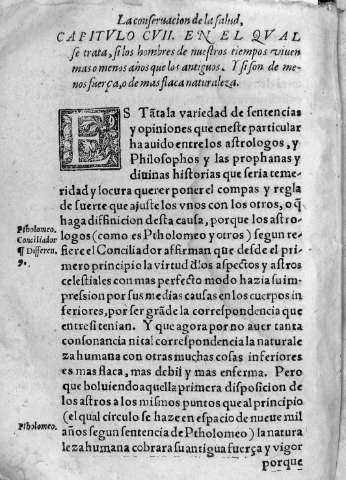 La conseruacion de la salud,
CAPITVLO CVII. EN EL QVAL
se trata, si los hombres de nuestros tiempos viuen
mas o menos años que los antiguos. Y si son de me-
nos fuerça, o de mas flaca naturaleza.
ES Tãta la variedad de sentencias
y opiniones que en este particular
ha auido entre los astrologos, y
Philosophos y las prophanas y
diuinas historias que seria teme-
ridad y locura querer poner el compas y regla
de suerte que ajuste los vnos con los otros, o q̃
haga diffinicion desta causa, porque los astro-
logos (como es Ptholomeo y otros) segun re-
fiere el Conciliador affirman que desde el pri-
mero principio la virtud d̃los aspectos y astros
celestiales con mas perfecto modo hazia su im-
pression por sus medias causas en los cuerpos in-
feriores, por ser grãde la correspondencia que
entre si tenian. Y que agora por no auer tanta
consonancia ni tal correspondencia la naturale
za humana con otras muchas cosas inferiores
es mas flaca, mas debil y mas enferma. Pero
que boluiendo aquella primera disposicion de
los astros a los mismos puntos que al principio
(el qual circulo se haze en espacio de nueue mil
años segun sentencia de Ptholomeo) la natura
leza humana cobrara su antigua fuerça y vigor
porque
Ptholomeo.
Conciliador
¶ Differen.
9.
Ptholomeo.